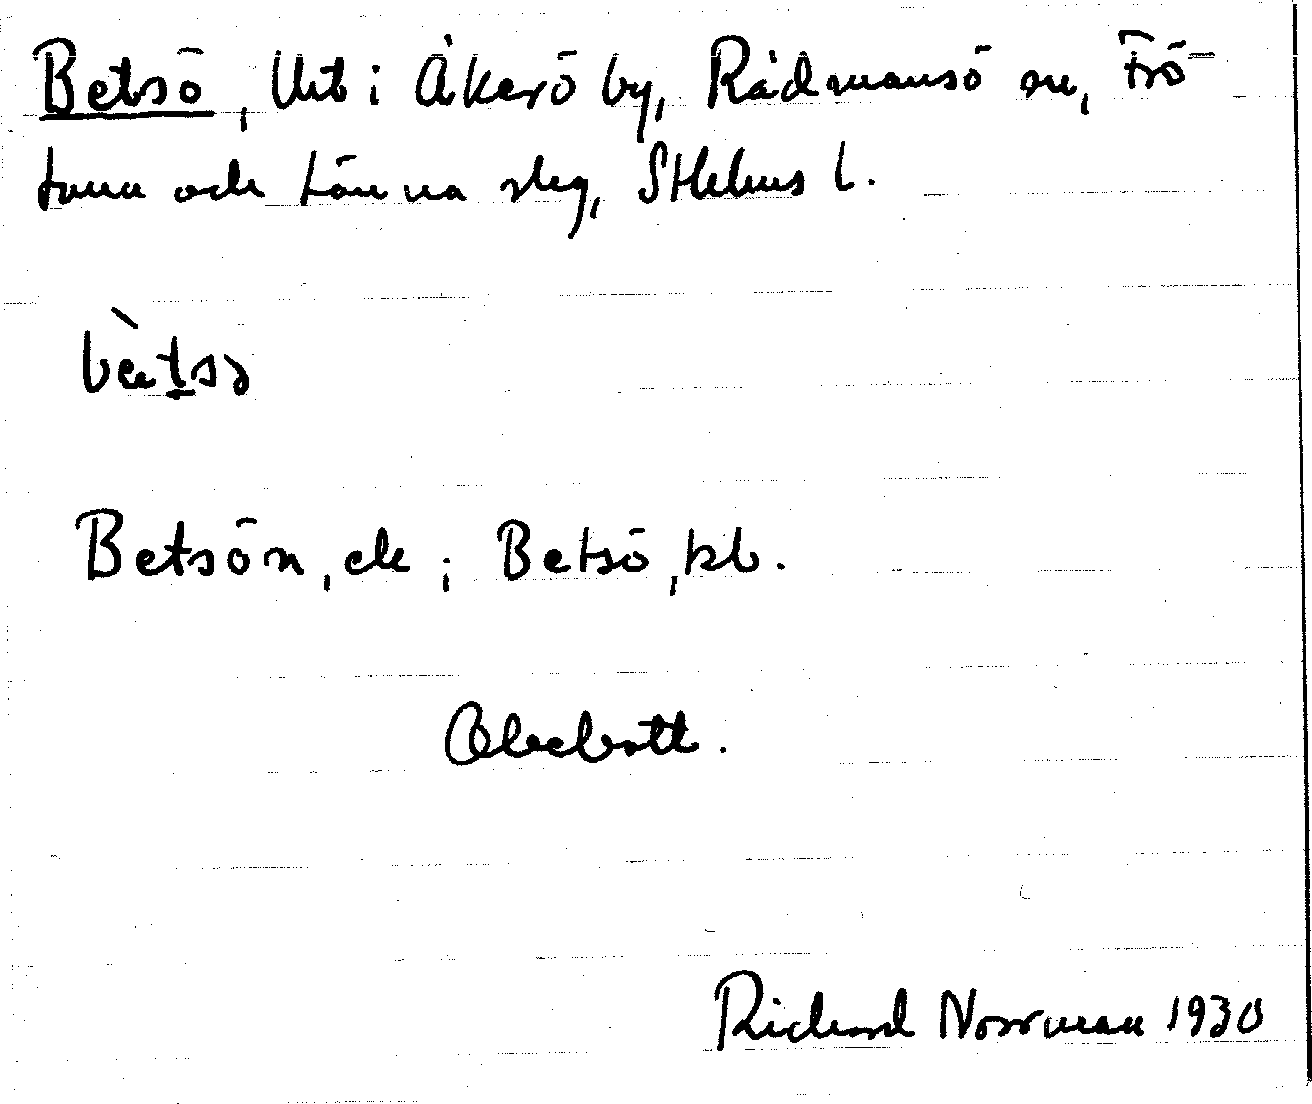 Betsö, Utt i Åkerö by, Rådmansö sn, Frö-
tuna och Länna slg, Sthlms l.
bèt̲sə
Betsön, ek; Betsö, kb.
Obebott.
Richard Norrman 1930